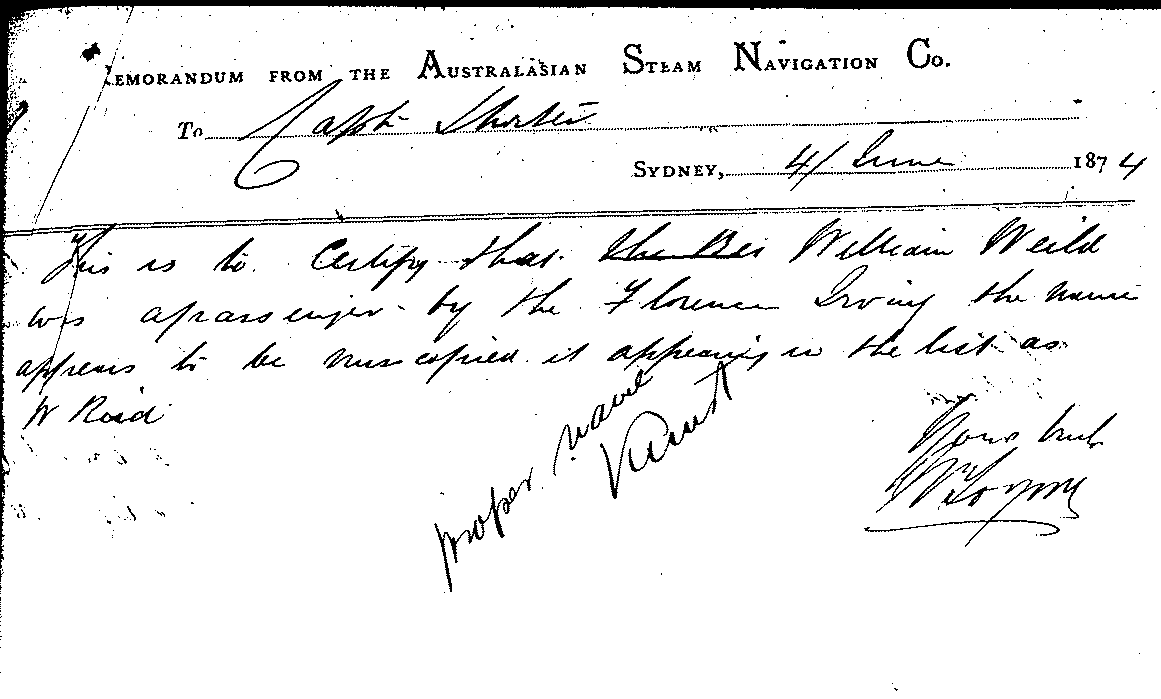 MEMORANDUM FROM THE AUSTRALASIAN STEAM NAVIGATION CO.
To Capt
SYDNEY, 4/ June 1874
This is to Certify that William Weild
was a passenger by the Florence Irving the name
appears to be miscopied it appearing in the list as
W Reid
proper name
Yours truly